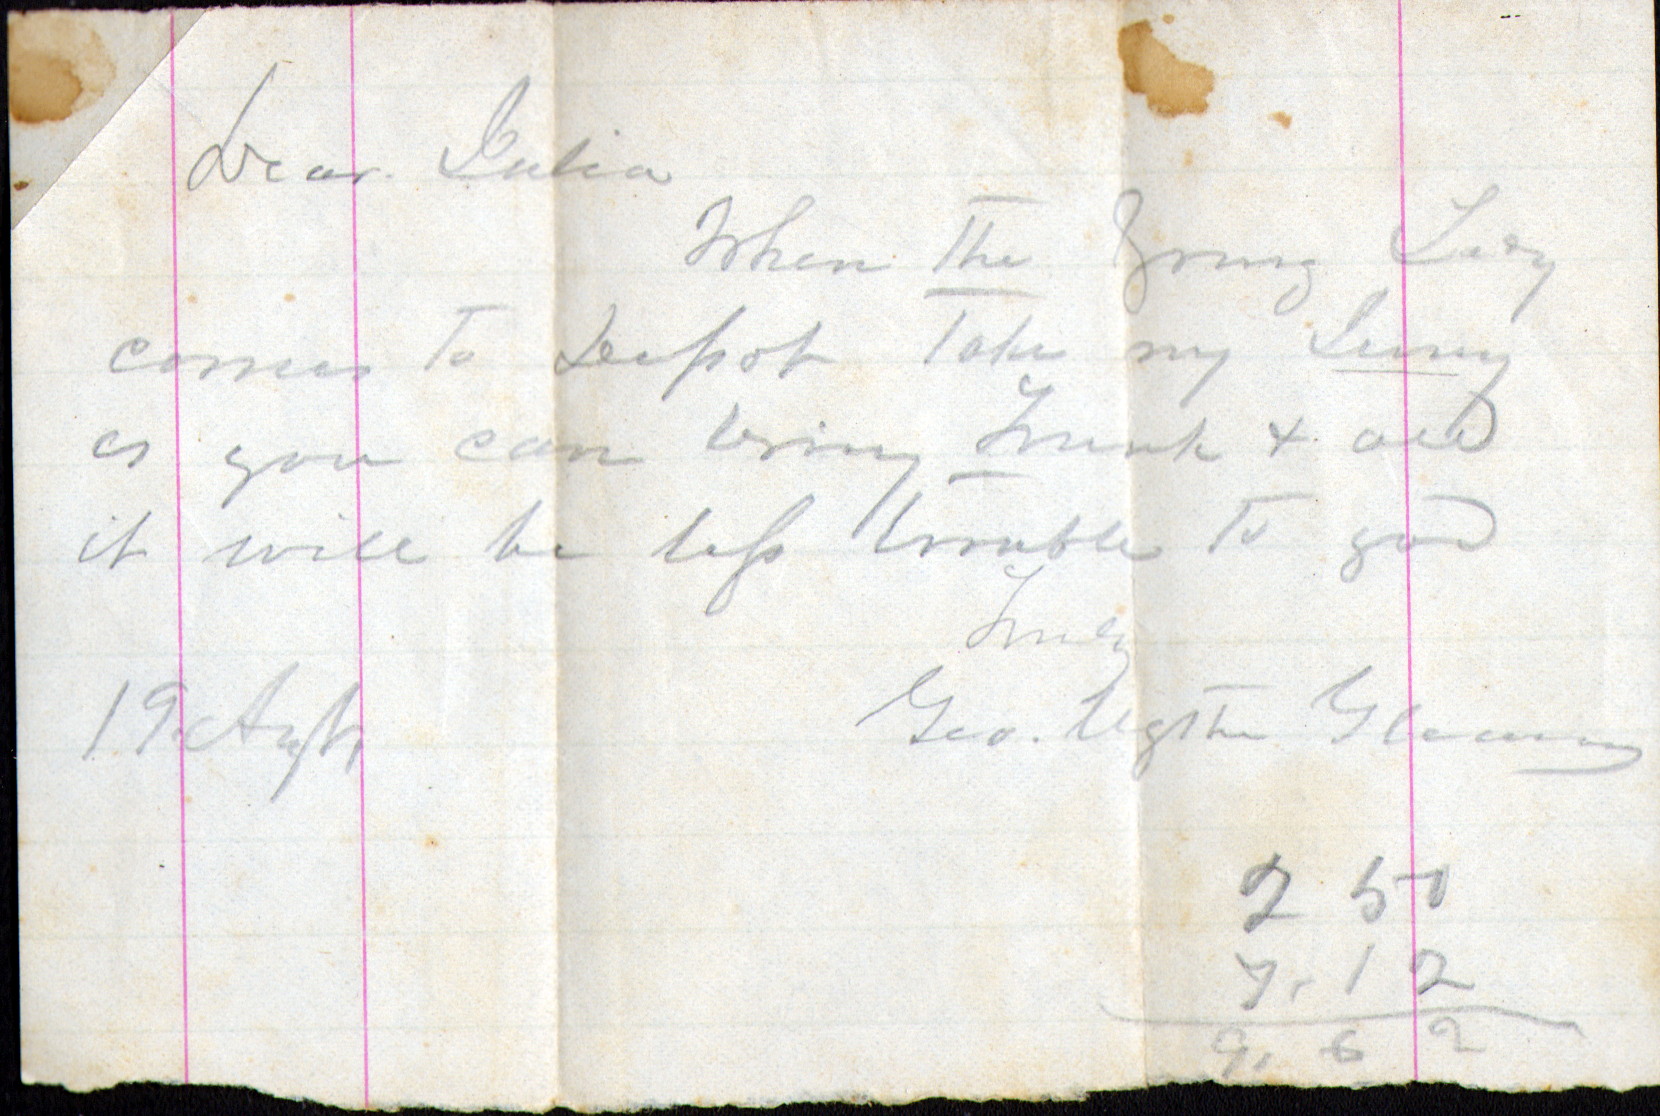 Dear Julia
When The Young Lady
comes To Deepot Take my
as you can bring Trunk & all
it will be less trouble to you
Truly
19 Geo.
2 50
7.12
9.62